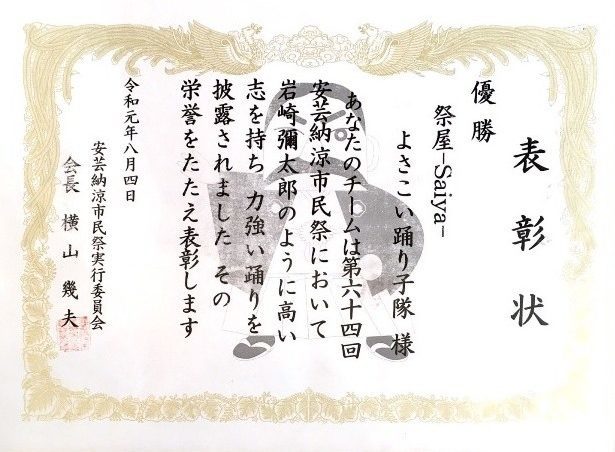 表彰状
優勝
祭屋-Saiya-
よさこい踊り子隊 様
あなたのチームは第六十四回
安芸納涼市民祭において
岩崎彌太郎のように高い
志を持ち 力強い踊りを
披露されました その
栄誉をたたえ表彰します
令和元年八月四日
安芸納涼市民祭実行委員会
会長 横山幾夫